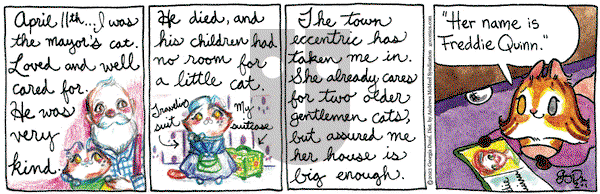 April 11th...I was
the mayor's cat.
Loved and well
cared for.
He was
very
kind.
He died, and
his children had
no room for
a little cat.
Traveling
suit
My
suitcase
The town
eccentric has
taken me in.
She already cares
for two older
gentlemen cats,
but assured me
her house is
big enough.
"Her name is
Freddie Quinn."